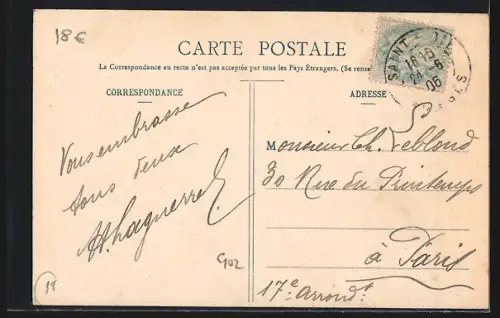 18€
CARTE POSTALE
La Correspondance au recto n'est pas acceptée par tous les Pays Étrangers. (Se rense
CORRESPONDANCE
ADRESSE
SAINT-DIÉ
18
6
06
Vous embrasse
tous deux
H. Laguerre
Monsieur Ch. Leblond
30 Rue du Printemps
à Paris
17e Arrondt
G02
18